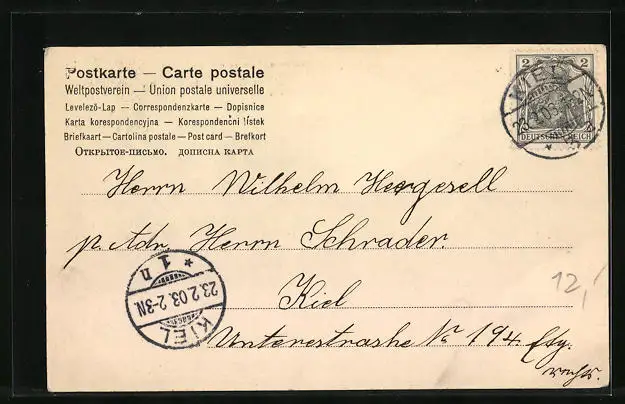 Postkarte — Carte postale
Weltpostverein — Union postale universelle
Levelező-Lap — Correspondenzkarte — Dopisnice
Karta korespondencyjna — Korespondenční lístek
Briefkaart — Cartolina postale — Post card — Brefkort
Открытое-письмо. дописна карта
2 2
KIEL
DEUTSCHES REICH
Herrn Wilhelm Hergesell
p. Adr. Herrn Schrader.
Kiel
12,
Unterestrasse No 194. Etg.
rechts.
1 n
23.2.03. 2-3N
KIEL